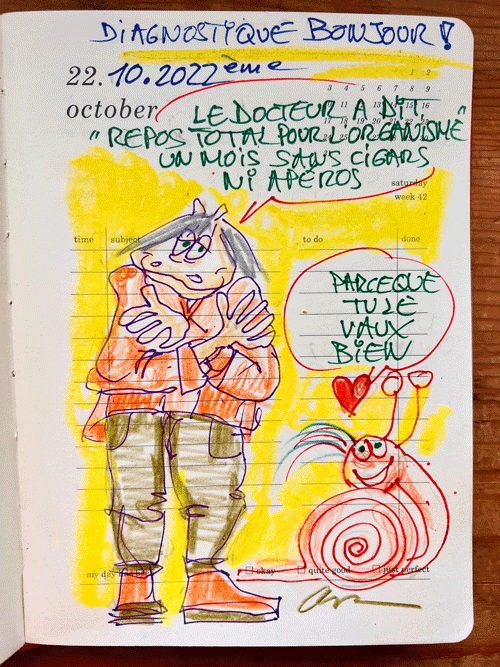 DIAGNOSTIQUE BONJOUR !
22. 10.2022ème
october
LE DOCTEUR A DIT
"REPOS TOTAL POUR L'ORGANISME"
UN MOIS SANS CIGARS
NI APÉROS
saturday
week 42
time subject to do done
PARCEQUE
TU LE
VAUX
BIEN
my day
okay quite good just perfect